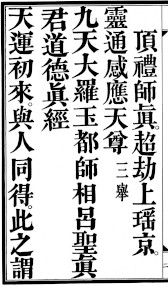 頂禮師眞。超劫上瑤京。
靈通感應天尊 三舉
九天大羅玉都師相呂聖眞
君道德眞經
天運初來。與人同得。此之謂